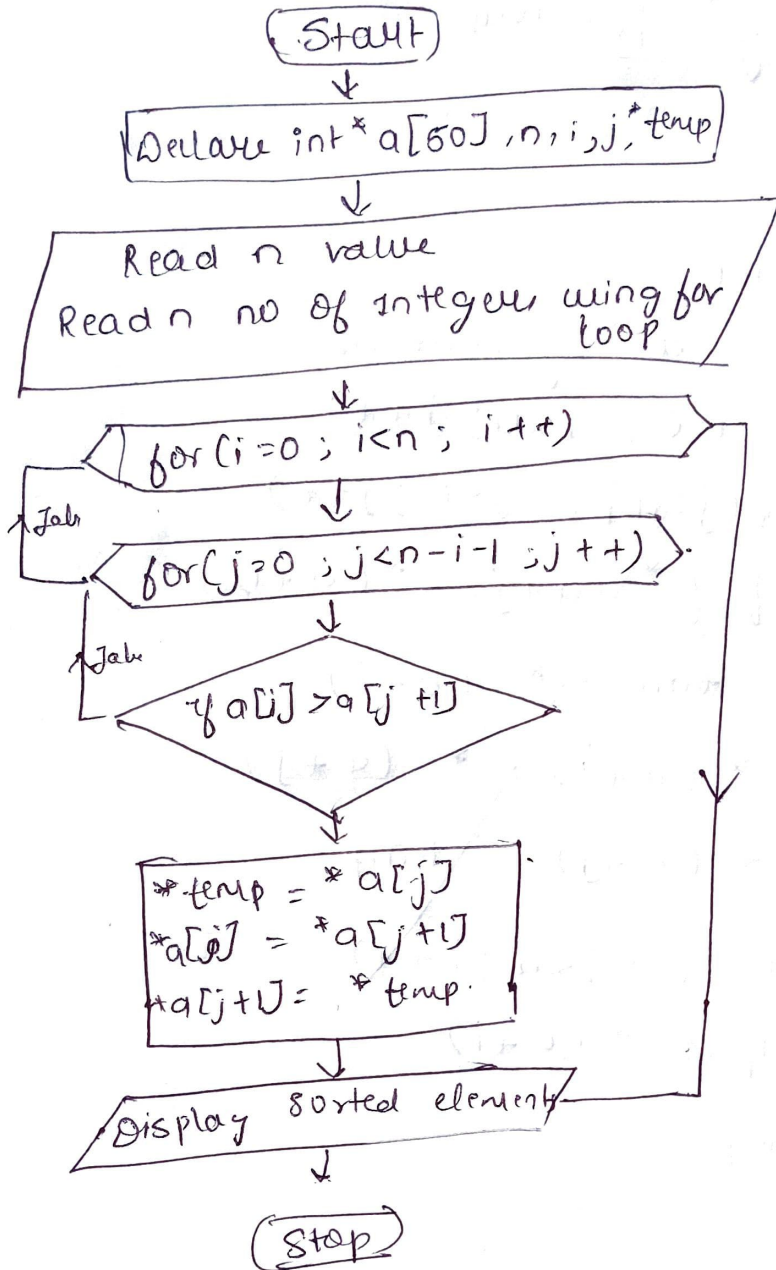 Start
Declare int * a[50] , n, i, j, * temp
Read n value
Read n no of Integers using for
loop
for (i=0 ; i<n ; i++)
False
for (j=0 ; j<n-i-1 ; j++)
False
if a[j] > a[j+1]
*temp = *a[j]
*a[j] = *a[j+1]
*a[j+1] = *temp.
Display sorted elements
Stop